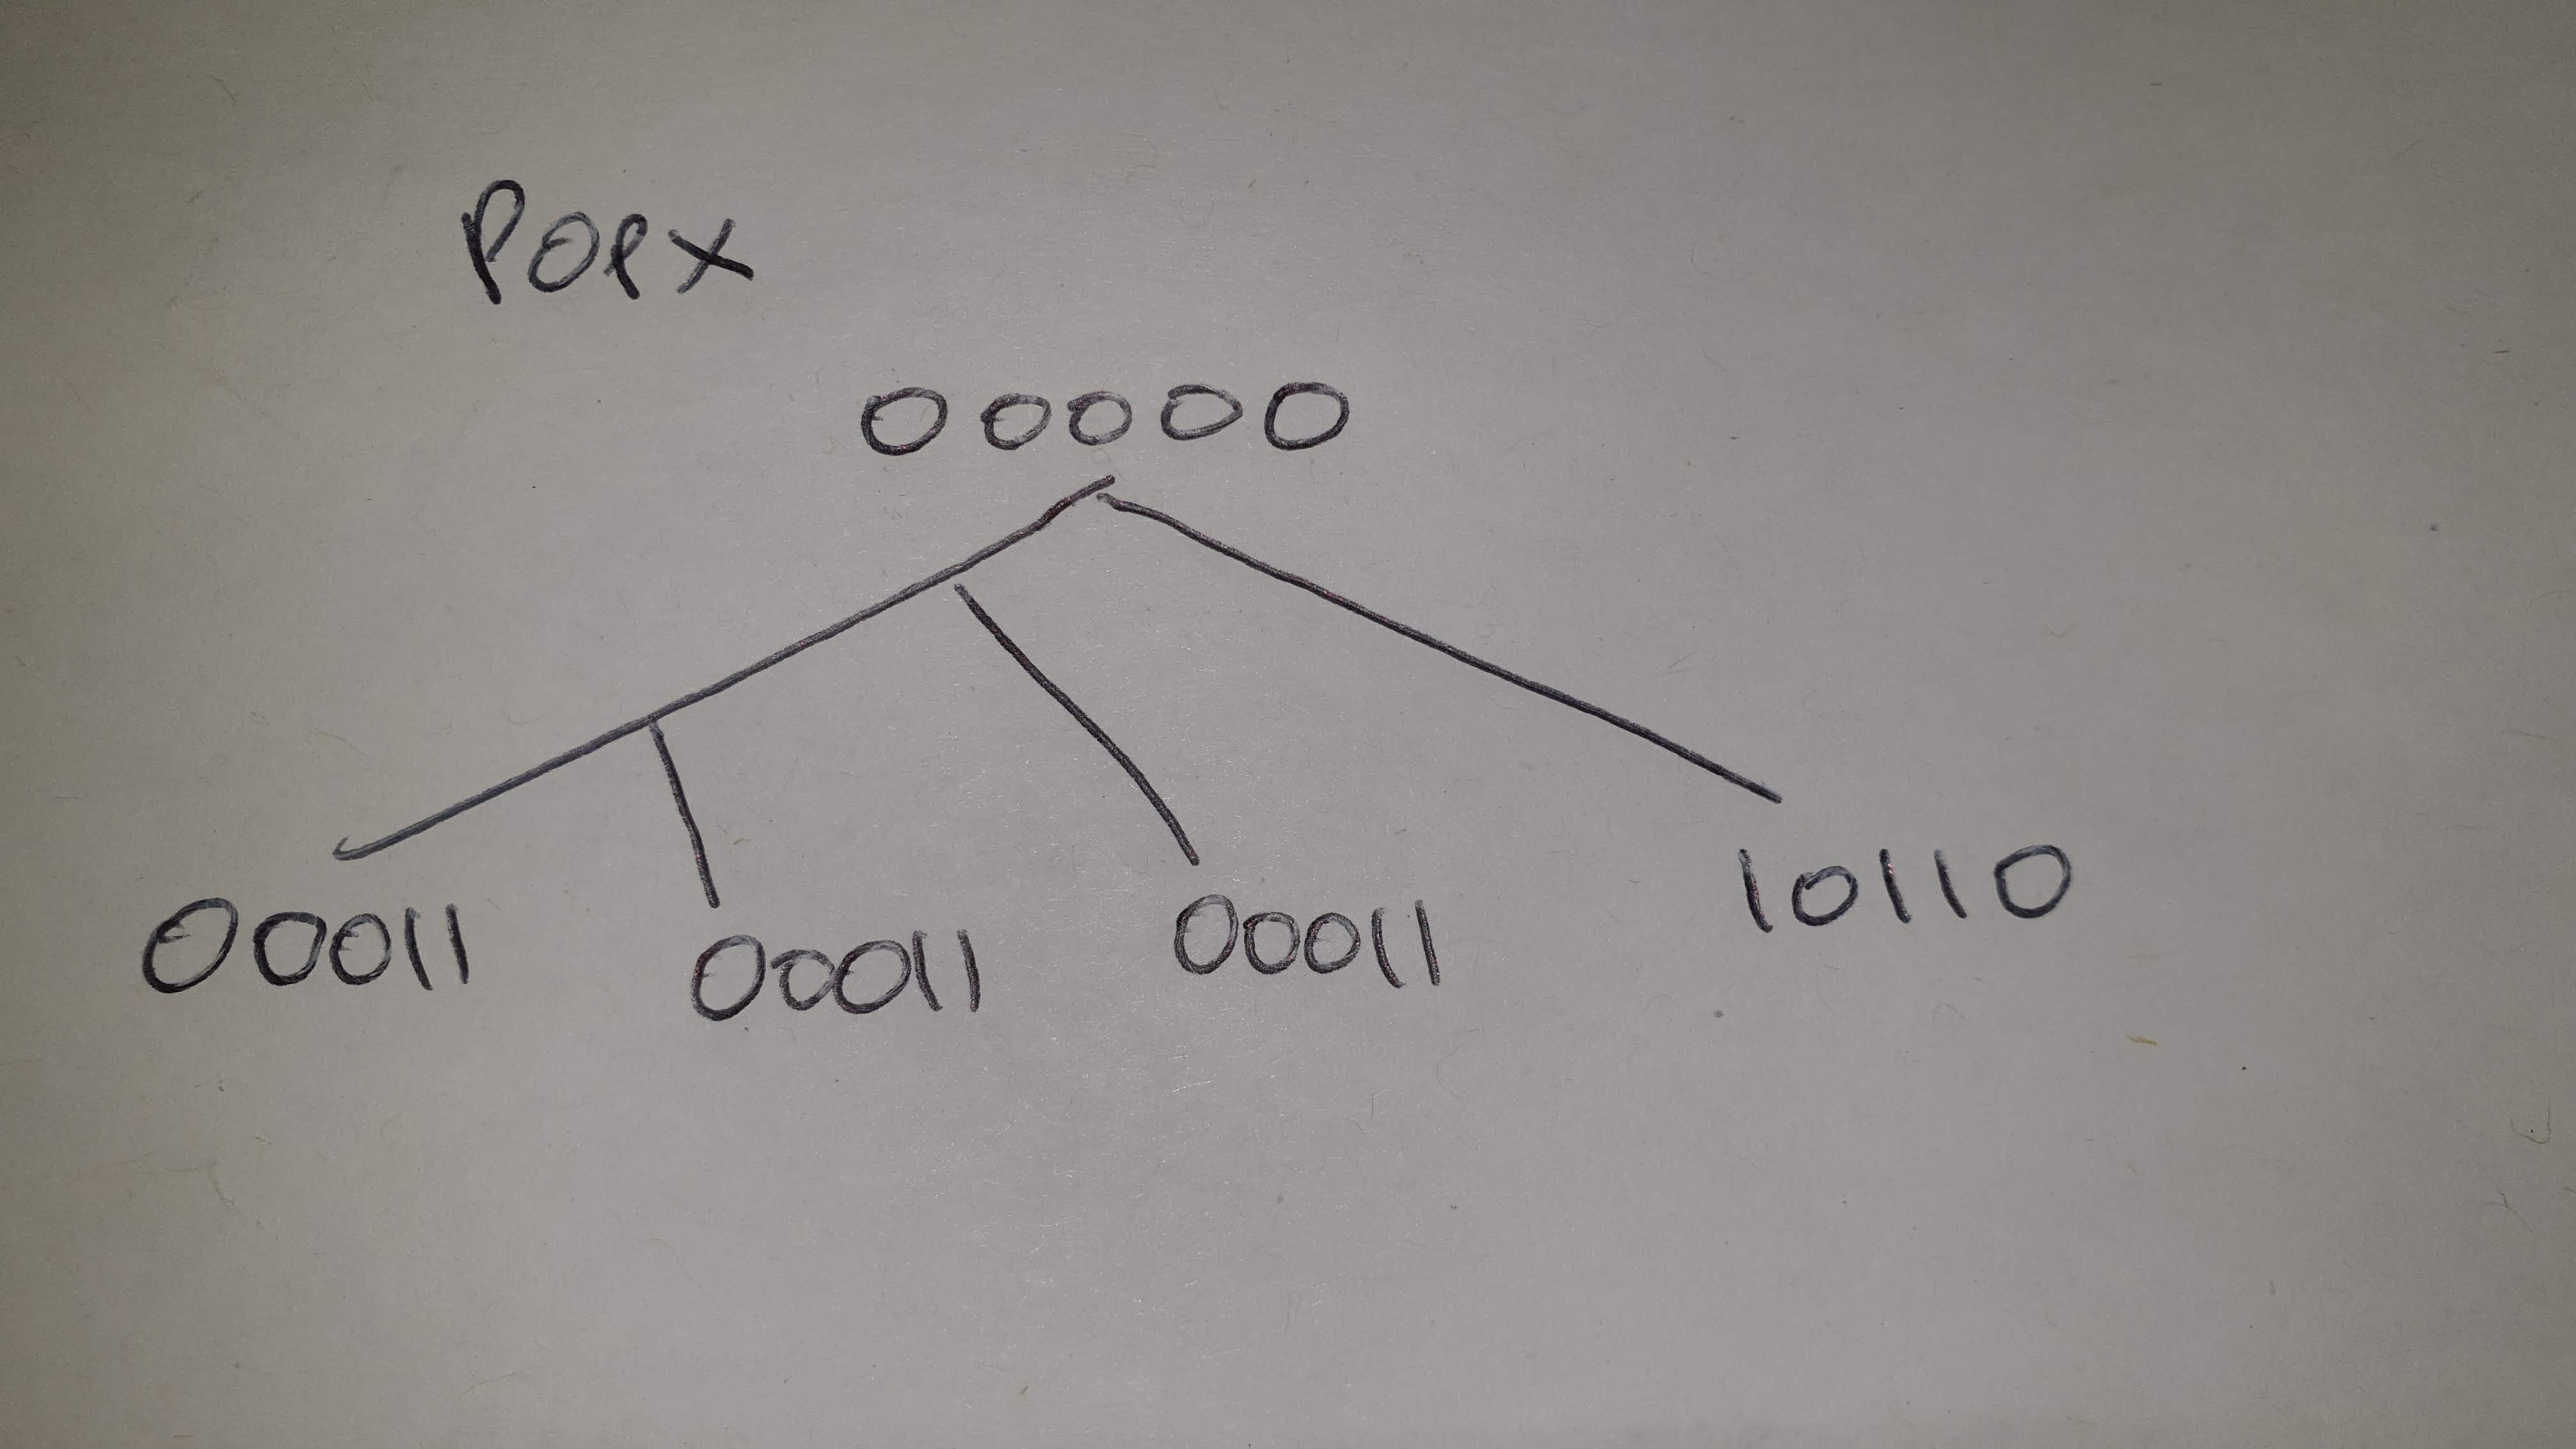 POPX
00000
00011 00011 00011 10110